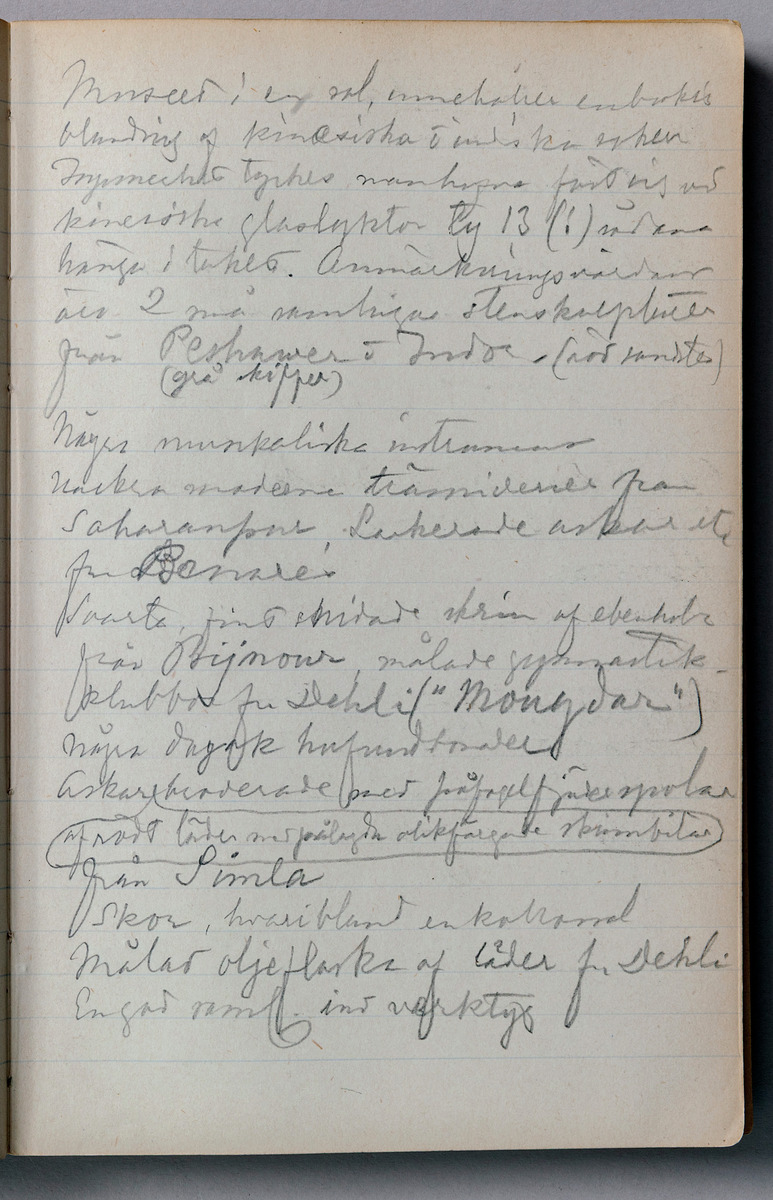 Museet i en sal, innehåller en brokig
blandning af kinesiska o indiska saker
Synnerligt tyckes man hafva fäst sig vid
kinesiska glaslyktor ty 13 (!) sådana
hänga i taket. Anmärkningsvärdare
äro 2 små samlingar stenskulpturer
från Peshawer o Indor. (röd sandsten)
(grå skiffer)
Några musikaliska instrument
Vackra moderna träsniderier från
Saharanpur, Lackerade askar etc
fr. Benares
Svarta, fint snidade skrin af ebenholz
från Bijnour, målade gymnastik-
klubbor fr Dehli ("Mougdar")
några dayak hufvudbonader
Askar broderade med påfågelfjäderspolar
af rödt läder med pålagda olikfärgade skinnbitar
från Simla
Skor, hvaribland en kolossal
Målad oljeflaska af läder fr Dehli
En god saml. ind verktyg